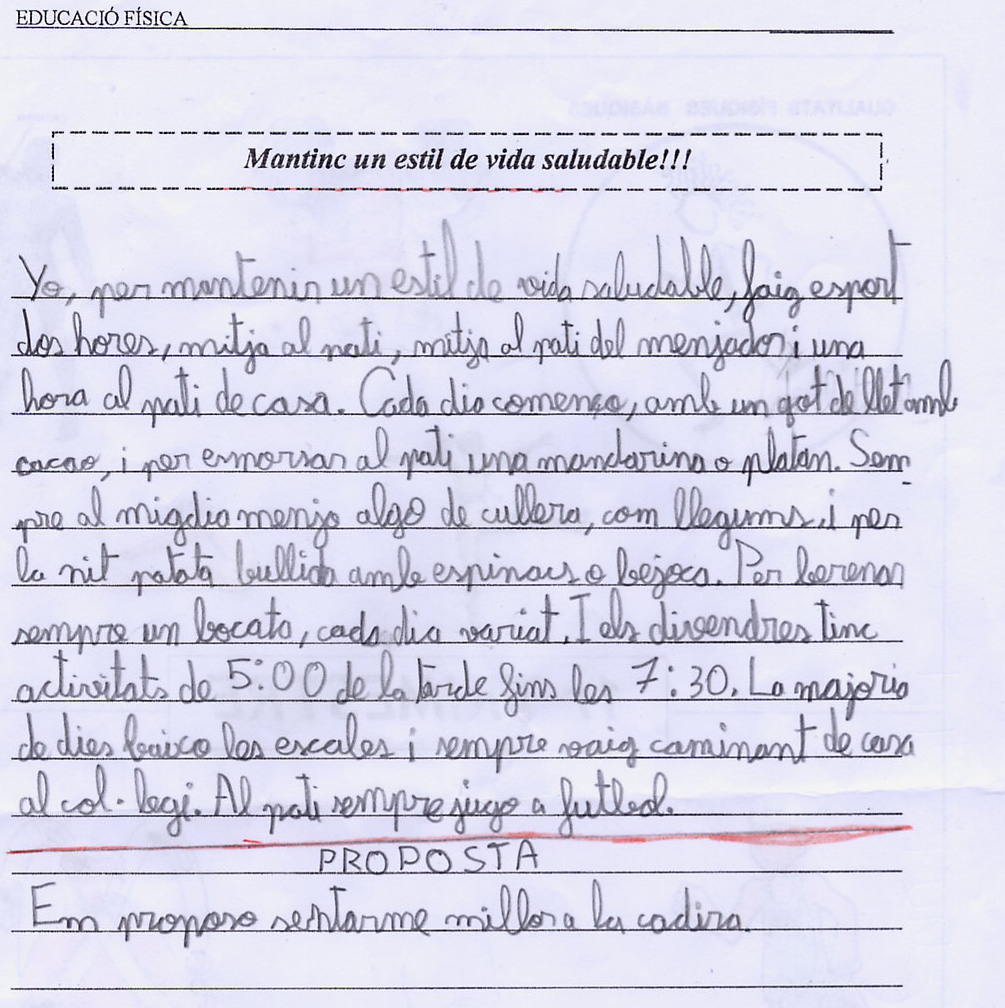 EDUCACIÓ FÍSICA
Mantinc un estil de vida saludable!!!
Yo, per mantenir un estil de vida saludable, faig esport
dos hores, mitja al pati, mitja al pati del menjador i una
hora al pati de casa. Cada dia comença, amb un got de llet amb
cacao, i per esmorsar al pati una mandarina o platan. Sem-
pre al migdia menjo algo de cullera, com llegums, i per
la nit patata bullida amb espinacs o bejoca. Per berenar
sempre un bocata, cada dia variat. I els divendres tinc
activitats de 5:00 de la tarde fins les 7:30. La majoria
de dies baixo les escales i sempre vaig caminant de casa
al col·legi. Al pati sempre jugo a futbol.
PROPOSTA
Em proposo sentarme millor a la cadira.